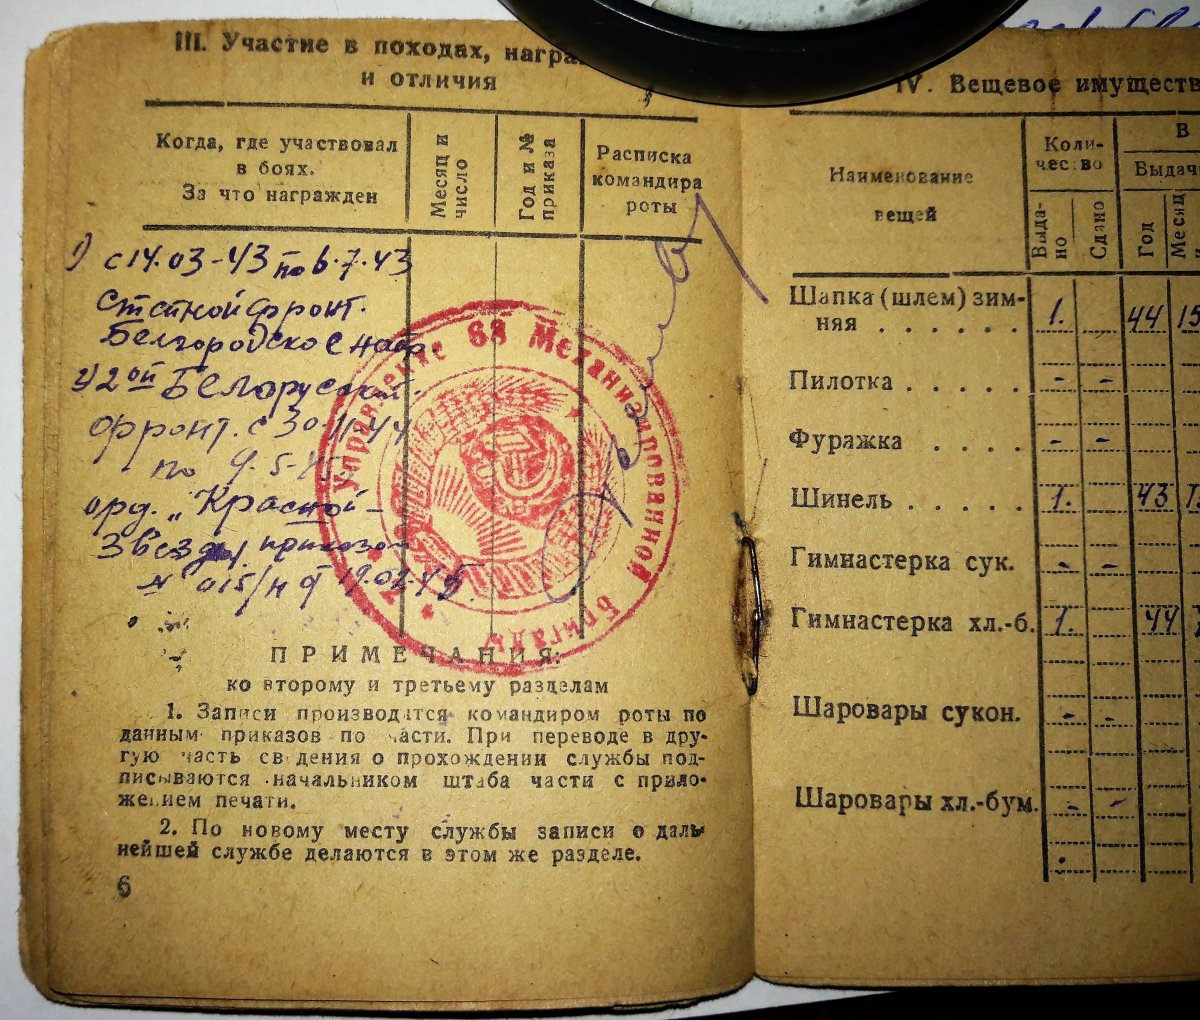 III. Участие в походах, награ
и отличия
Когда, где участвовал
в боях.
За что награжден
Месяц и
число
Год и №
приказа
Расписка
командира
роты
1) с 14.03-43 по 6.7.43
Степной фронт.
Белгородское напр
2) 2ой Белорусский
фронт. с 30.11.44
по 9.5-45
орд. „Красной
Звезды приказом
№ 015/н от 19.02.45.
Управление 68 Механизированной Бригады
ПРИМЕЧАНИЯ:
ко второму и третьему разделам
1. Записи производятся командиром роты по
данным приказов по части. При переводе в дру-
гую часть сведения о прохождении службы под-
писываются начальником штаба части с прило-
жением печати.
2. По новому месту службы записи о даль-
нейшей службе делаются в этом же разделе.
6
IV. Вещевое имуществ
Наименование
вещей
Коли-
чество
В
Выдач
Выда-
но
Сдано
Год
Месяц
Шапка (шлем) зим-
няя . . . . . . 1. 44 15
Пилотка . . . . . - -
Фуражка . . . . - -
Шинель . . . . . 1. 43 1
Гимнастерка сук. - -
Гимнастерка хл.-б. 1. 44
Шаровары сукон. - -
Шаровары хл.-бум. - -